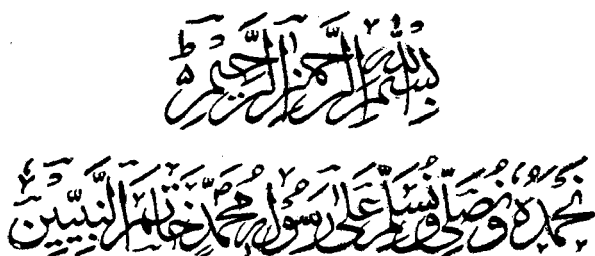 بِسْمِ اللهِ الرَّحْمٰنِ الرَّحِيْمِ ؕ
نَحْمَدُهٗ وَنُصَلِّيْ وَنُسَلِّمُ عَلٰى رَسُوْلِهٖ مُحَمَّدٍ خَاتَمِ النَّبِيِّيْنَ